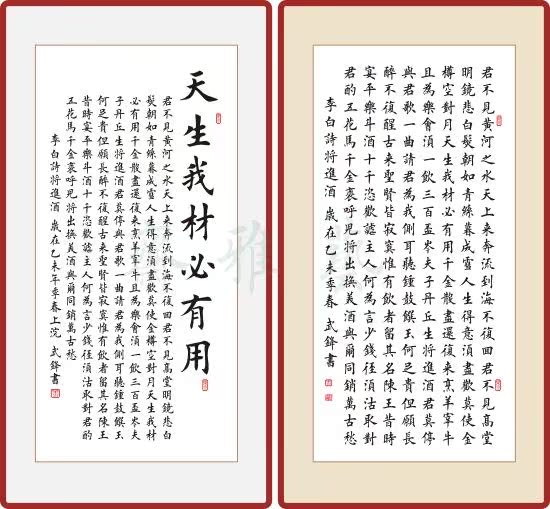 天生我材必有用
君不見黃河之水天上來奔流到海不復回君不見高堂明鏡悲白
髮朝如青絲暮成雪人生得意須盡歡莫使金樽空對月天生我材
必有用千金散盡還復來烹羊宰牛且為樂會須一飲三百盃岑夫
子丹丘生將進酒君莫停與君歌一曲請君為我側耳聽鍾鼓饌玉
何足貴但願長醉不復醒古來聖賢皆寂寞惟有飲者留其名陳王
昔時宴平樂斗酒十千恣歡謔主人何為言少錢徑須沽取對君酌
五花馬千金裘呼兒將出換美酒與爾同銷萬古愁
李白詩將進酒 歲在乙未年季春上浣 式鋒書
君不見黃河之水天上來奔流到海不復回君不見高堂
明鏡悲白髮朝如青絲暮成雪人生得意須盡歡莫使金
樽空對月天生我材必有用千金散盡還復來烹羊宰牛
且為樂會須一飲三百盃岑夫子丹丘生將進酒君莫停
與君歌一曲請君為我側耳聽鍾鼓饌玉何足貴但願長
醉不復醒古來聖賢皆寂寞惟有飲者留其名陳王昔時
宴平樂斗酒十千恣歡謔主人何為言少錢徑須沽取對
君酌五花馬千金裘呼兒將出換美酒與爾同銷萬古愁
李白詩將進酒 歲在乙未季春 式鋒書
雅